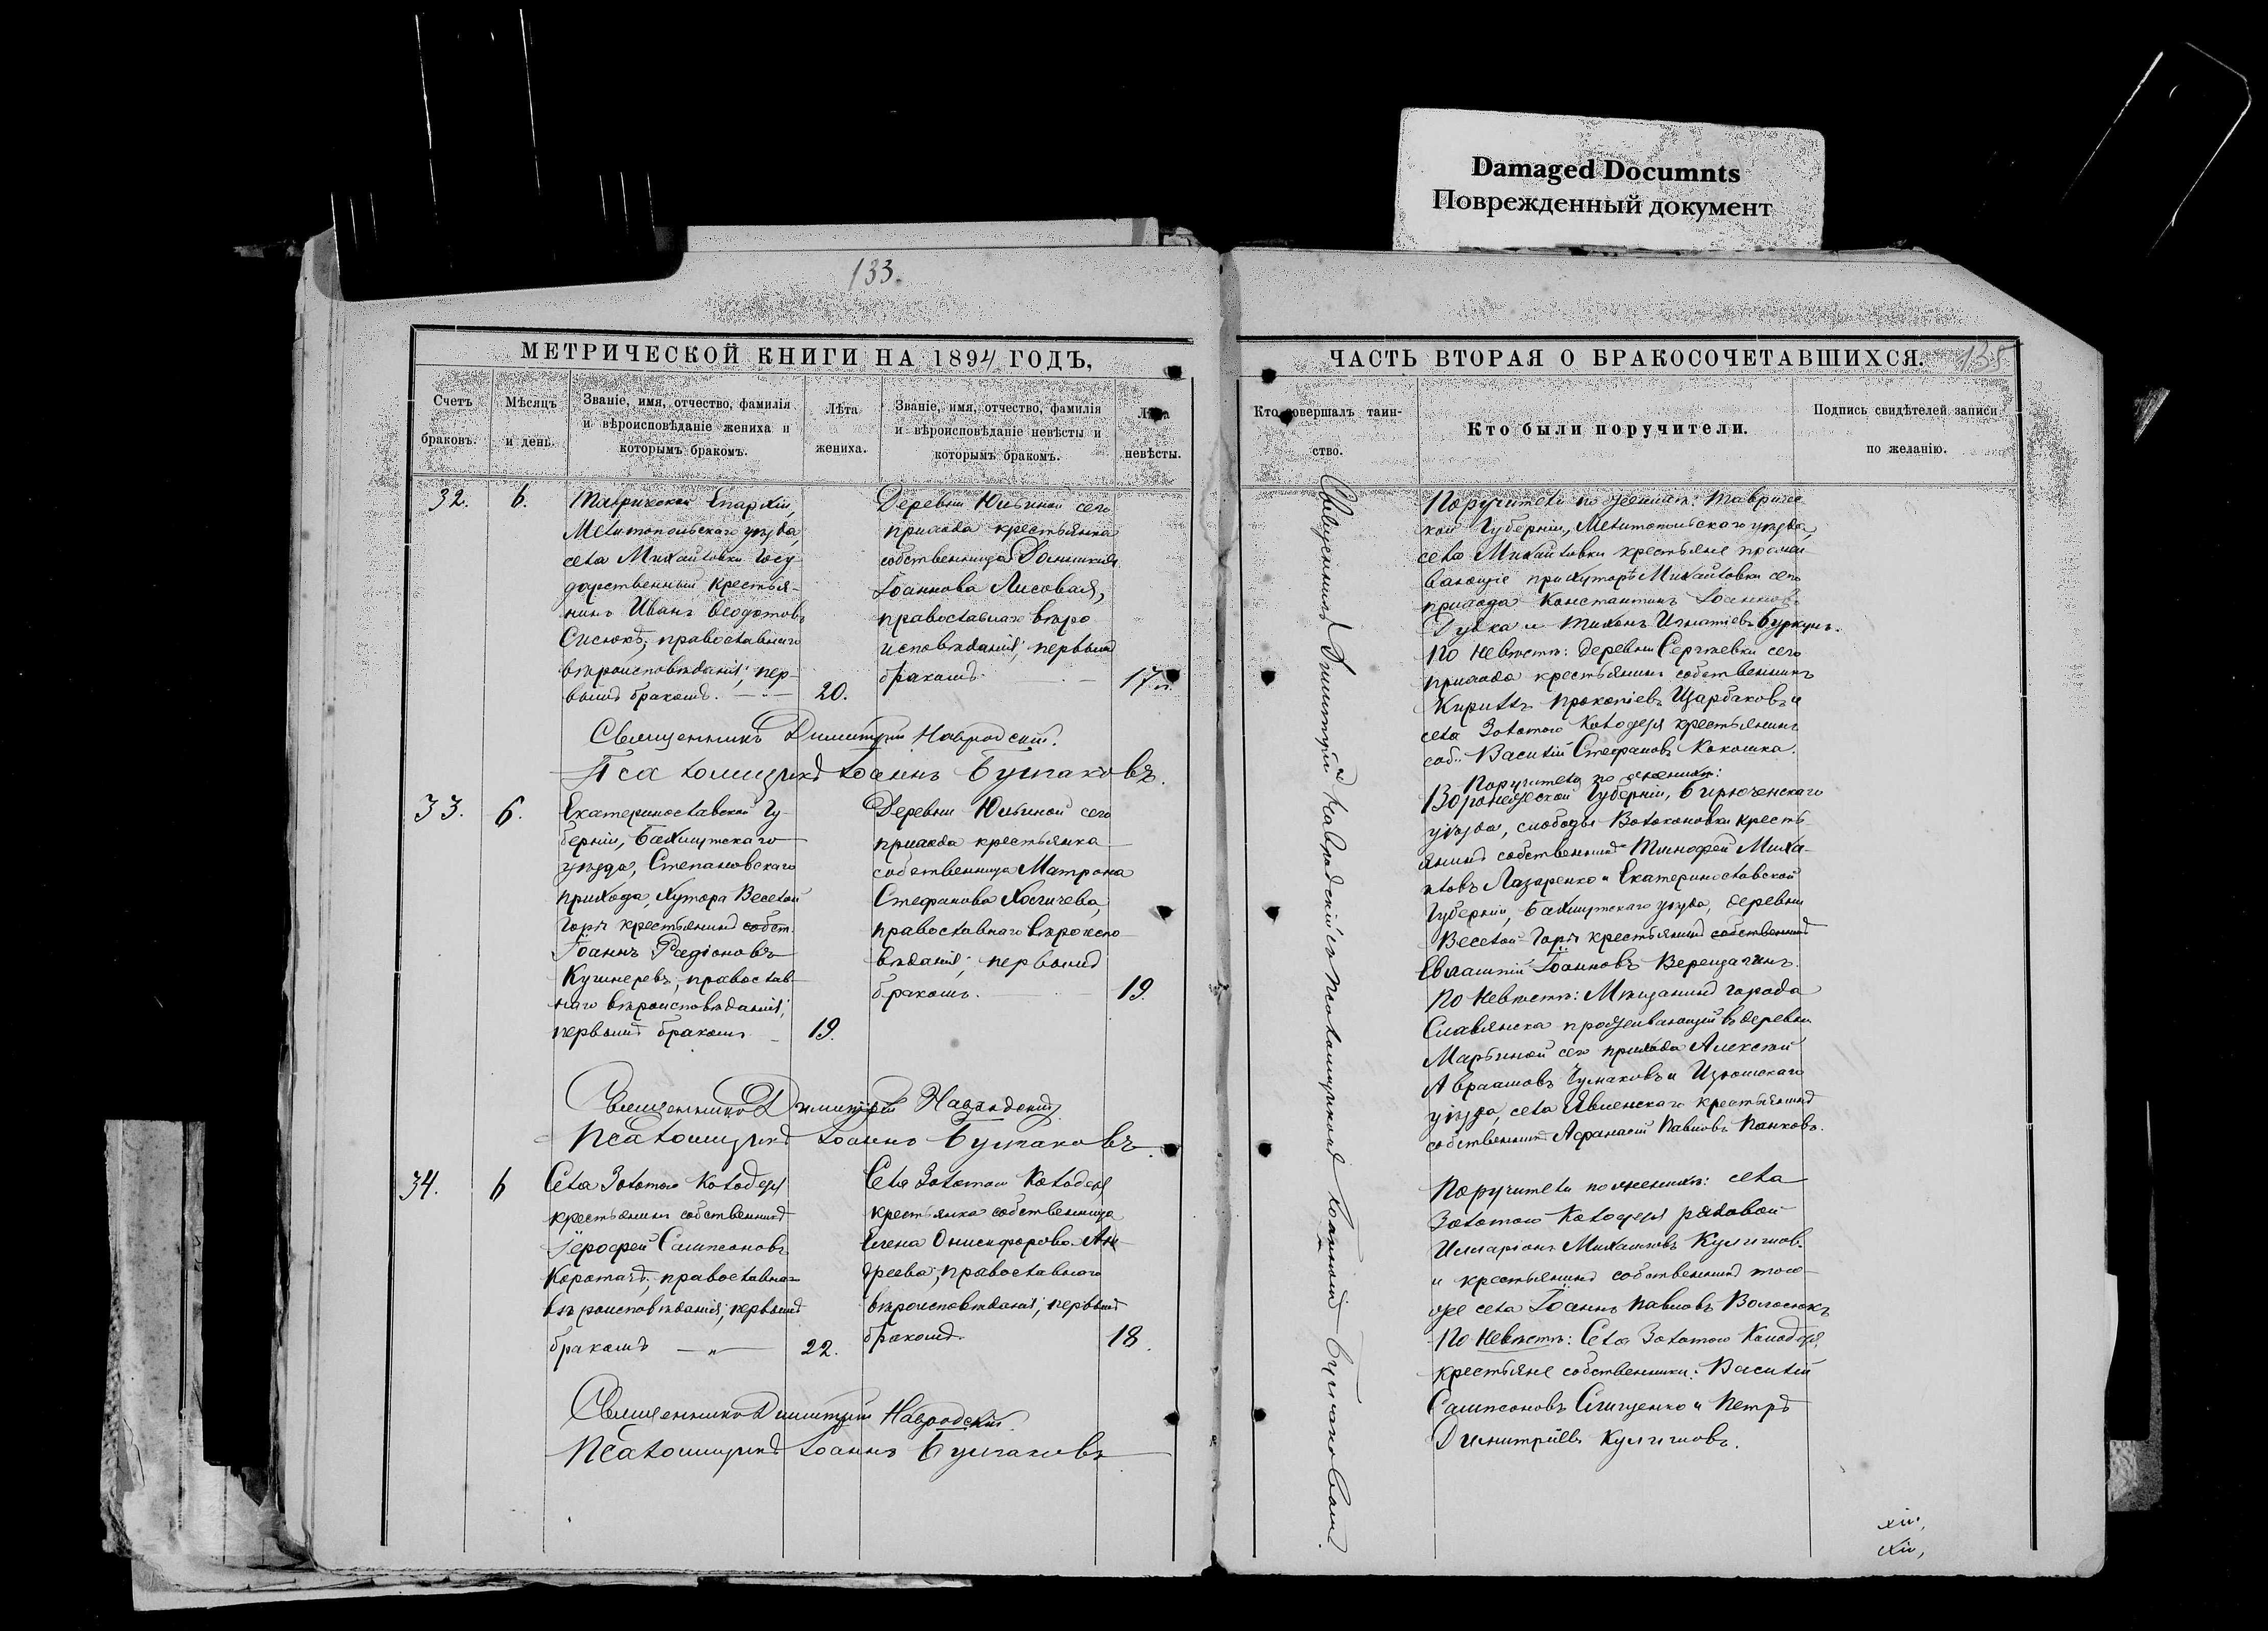 Damaged Documnts
Поврежденный документ
133.
МЕТРИЧЕСКОЙ КНИГИ НА 1894 ГОДЪ,
Счетъ браковъ.
Мѣсяцъ и день.
Званіе, имя, отчество, фамилія
и вѣроисповѣданіе жениха и
которымъ бракомъ.
Лѣта жениха.
Званіе, имя, отчество, фамилія
и вѣроисповѣданіе невѣсты и
которымъ бракомъ.
Лѣта невѣсты.
32.
6.
Таврической Епархіи,
Мелитопольскаго уѣзда,
села Михайловки Госу-
дарственный крестья-
нинъ Иванъ Ѳеодотовъ
Сисюкъ, православнаго
вѣроисповѣданія; пер-
вымъ бракомъ. — 20.
Деревни Юльиной сего
прихода крестьянка
собственница
Іоаннова Лисовая,
православнаго вѣро
исповѣданія; первымъ
бракомъ. 17
Священникъ Димитрій Навродскій.
Псаломщикъ Іоаннъ Булгаковъ.
33.
6.
Екатеринославской Гу-
берніи, Бахмутскаго
уѣзда, Степановскаго
прихода, хутора Веселой
Горы крестьянинъ собст.
Іоаннъ Родіоновъ
Кушнеревъ, православ-
наго вѣроисповѣданія;
первымъ бракомъ 19.
Деревни Юльиной сего
прихода крестьянка
собственница Матрона
Стефанова
православнаго вѣроиспо
вѣданія; первымъ
бракомъ. 19.
Священникъ Димитрій Навродскій.
Псаломщикъ Іоаннъ Булгаковъ.
34.
6
Села Золотого Колодезя
крестьянинъ собственникъ
Іерофей Сампсоновъ
православнаго
вѣроисповѣданія; первымъ
бракомъ —„— 22.
Села Золотого Колодезя
крестьянка собственница
Елена Онисифорова Ан-
дреева, православнаго
вѣроисповѣданія; первымъ
бракомъ. 18.
Священникъ Димитрій Навродскій
Псаломщикъ Іоаннъ Булгаковъ
ЧАСТЬ ВТОРАЯ О БРАКОСОЧЕТАВШИХСЯ.
135
Кто совершалъ таин-
ство.
Кто были поручители.
Подпись свидѣтелей записи
по желанію.
Священникъ Димитрій Навродскій съ псаломщикомъ Іоанномъ Булгаковымъ.
Поручители по женихѣ: Тавричес
кой Губерніи, Мелитопольскаго уѣзда,
села Михайловки крестьяне прожи
вающіе при хуторѣ Михайловки сего
прихода Константинъ Іоанновъ
Дудка и Тихонъ Игнатіевъ
По невѣстѣ: деревни Сергѣевки сего
прихода крестьянинъ собственникъ
Кириллъ Прокопіевъ Щарбаковъ и
села Золотого Колодезя крестьянинъ
соб. Василій Стефановъ Кокошка.
Поручители по женихѣ:
Воронежской Губерніи, Бирюченскаго
уѣзда, слободы Волоконовки кресть-
янинъ собственникъ Тимофей Миха-
иловъ Лазаренко и Екатеринославской
Губерніи, Бахмутскаго уѣзда, деревни
Веселой-Горы крестьянинъ собственникъ
Евлампій Іоанновъ Верещагинъ.
По невѣстѣ: Мѣщанинъ города
Славянска проживающій въ деревни
Марьиной сего прихода Алексѣй
Авраамовъ Чумаковъ и Изюмскаго
уѣзда, села крестьянинъ
собственникъ Афанасій Павловъ Панковъ.
Поручители по женихѣ: села
Золотого Колодезя рядовой
Илларіонъ Михаиловъ Кулишовъ
и крестьянинъ собственникъ того-
же села Іоаннъ Павловъ Волосюкъ
По невѣстѣ: Села Золотого Колодезя
крестьяне собственники: Василій
Сампсоновъ и Петръ
Димитріевъ Кулишовъ.